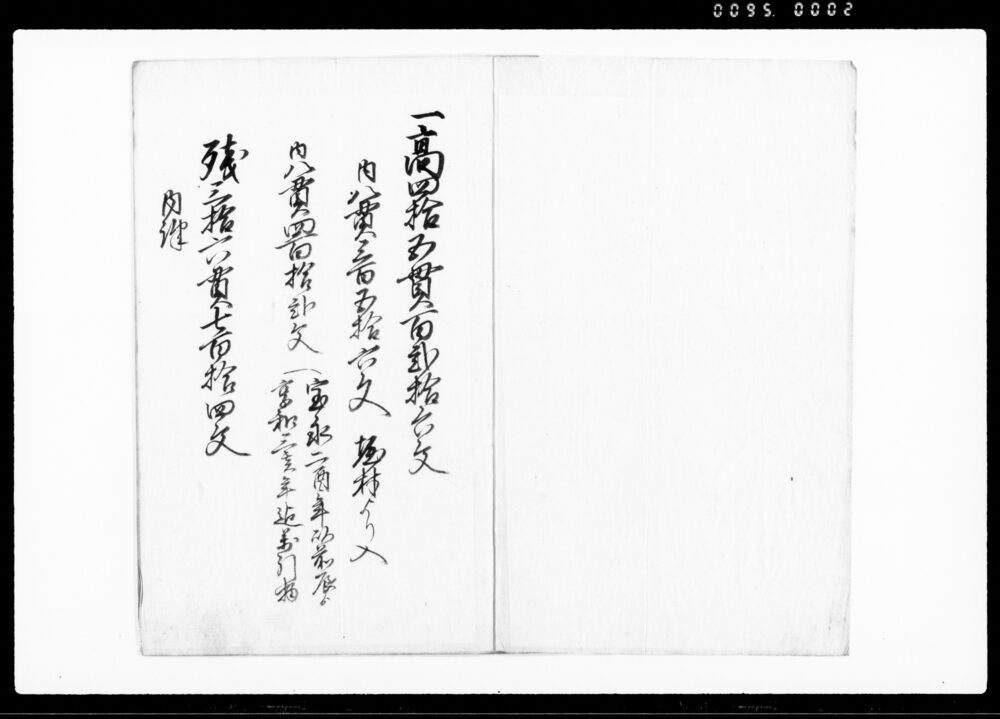 0095 0002
一高四拾五貫百弐拾六文
内八貫三百五拾六文 堀村より入
内八貫四百拾弐文
宝永二酉年以前辰ゟ
享和三亥年迄万引物
残三拾六貫七百拾四文
内訳